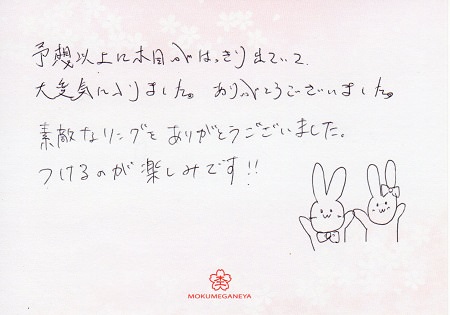 予想以上に木目がはっきり出ていて、
大変気に入りました。ありがとうございました。
素敵なリングをありがとうございました。
つけるのが楽しみです!!
MOKUMEGANEYA